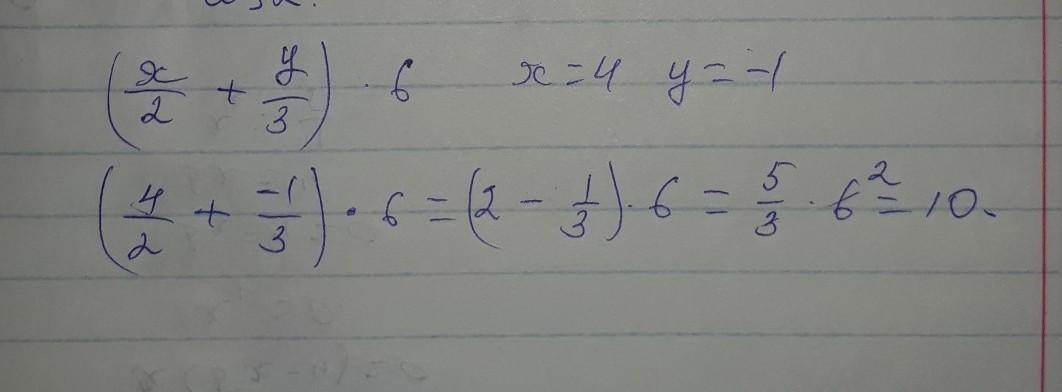 (x/2 + y/3) · 6 x = 4 y = -1
(4/2 + -1/3) · 6 = (2 - 1/3) · 6 = 5/3 · 6² = 10.